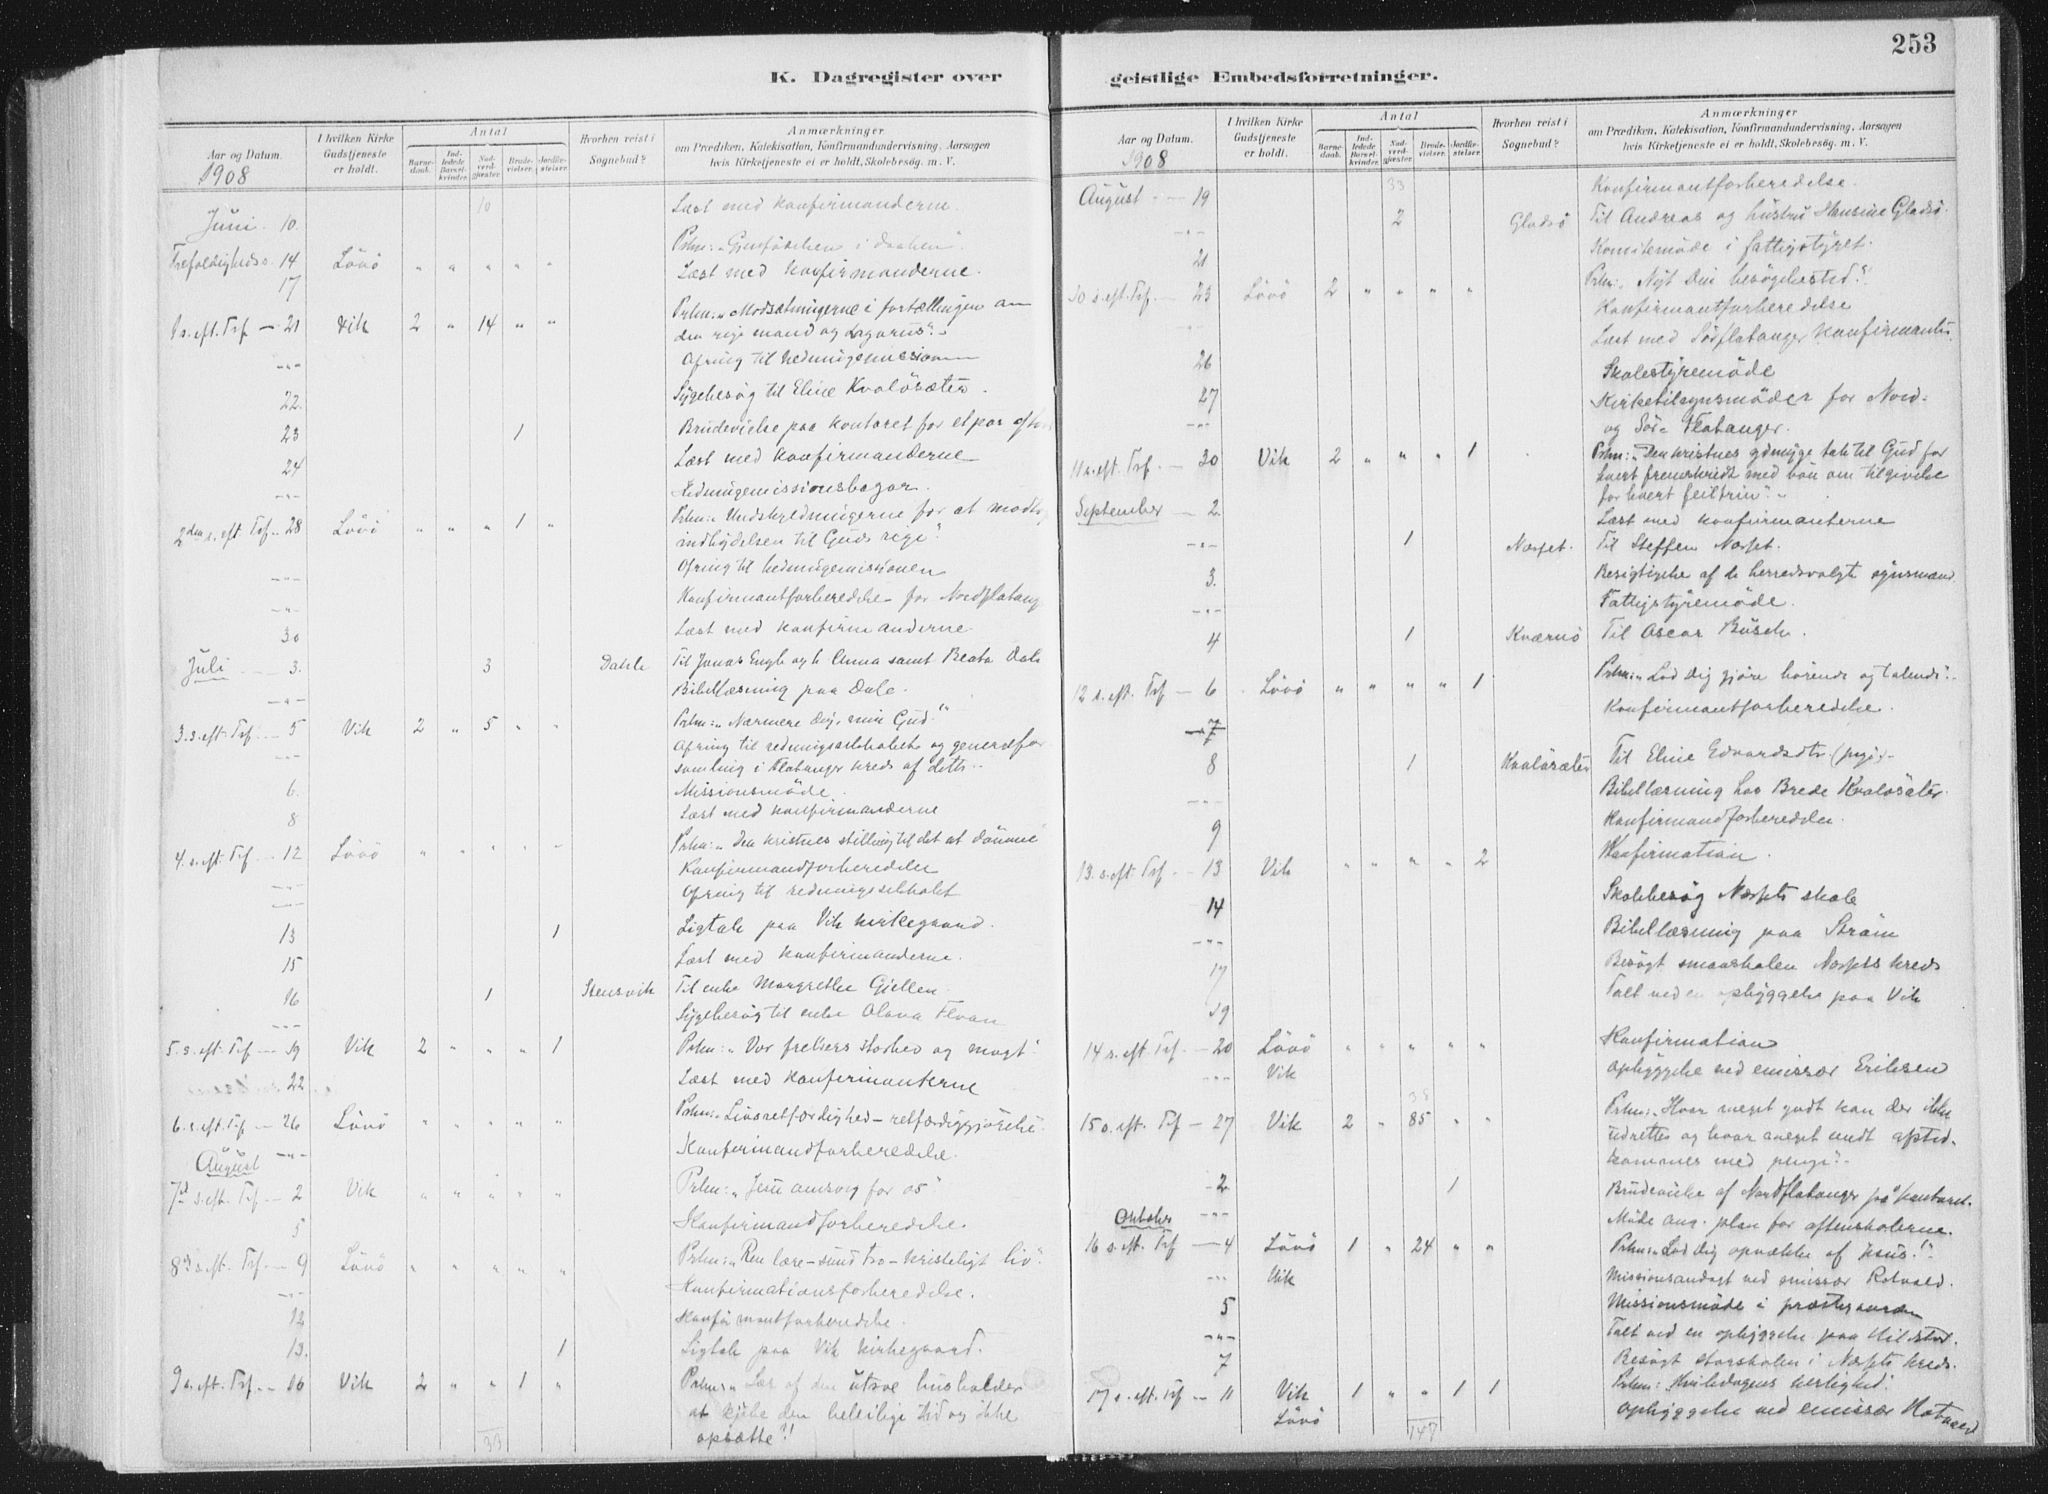 253
K. Dagregister over geistlige Embedsforretninger.
Aar og Datum.
1908
I hvilken Kirke Gudstjeneste er holdt.
Antal
Barnedaab.
Indledede Barselkvinder.
Nadverdgjæster
Brudevielser.
Jordfæstelser.
Hvorhen reist i Sognebud?
Anmærkninger
om Prædiken, Katekisation, Konfirmandundervisning, Aarsagen
hvis Kirketjeneste ei er holdt, Skolebesög. m. V.
10
Juni 10. Læst med konfirmanderne.
Trefoldigheds s. 14 Lövö " " " " " Prkn: "Gjenfödselen i daaben".
17 Læst med konfirmanderne.
1 s. eft. Tref. — 21 Vik 2 " 14 " " Prkn: "Modsætningerne i fortællingen om
den rige mand og Lazarus".
-"- Ofring til hedningemissionen
22. Sygebesög til Eline Kvalösæter.
23 1 Brudevielse paa kontoret for et par af
24 Læst med konfirmanderne
-"- Hedningemissionsbazar.
2den s. eft. Tref. — 28 Lövö " " " 1 " Prkn: "Undskyldningerne for at modtag
indbydelsen til Guds rige".
-"- Ofring til hedningemissionen
-"- Konfirmantforberedelse for Nordflatang
30 Læst med konfirmanderne
Juli — 3. 3 Dahle Til Jonas Engh og h. Anna samt Beata Dale
-"- Bibellæsning paa Dale.
3. s. eft. Tref. — 5 Vik 2 " 5 " " Prkn: "Nærmere dig, min Gud!"
-"- Ofring til redningsselskabet og generalfor
samling i Flatanger kreds af dette.
6. Missionsmöde.
8 Læst med konfirmanderne
4. s. eft. Tref. — 12 Lövö " " " " " Prkn: "Den kristnes stilling til det at dömme
-"- Konfirmandforberedelse
-"- Ofring til redningsselskabet
13 1 Ligtale paa Vik kirkegaard.
15 Læst med konfirmanderne.
16 1 Stensvik Til enke Margrethe Gjellen.
-"- Sygebesög til enke Olava
5. s. eft. Tref. — 19 Vik 2 " " " 1 Prkn: "Vor frelsers storhed og magt".
22 Læst med konfirmanterne
6. s. eft. Tref. — 26 Lövö " " " " " Prkn: "Livsretfærdighed – retfærdiggjörelse.
-"- Konfirmandforberedelse.
August
7de s. eft. Tref. — 2 Vik " " " " " Prkn: "Jesu omsorg for os"
5 Konfirmandforberedelse.
8de s. eft. Tref. — 9 Lövö " " " " " Prkn: "Ren lære – sund tro – kristeligt liv".
-"- Konfirmationsforberedelse.
12 Konfirmantforberedelse.
13. 1 Ligtale paa Vik kirkegaard.
9 s. eft. Tref. — 16 Vik 2 " " 1 " Prkn: "Lær af den utroe husholder
at kjöbe den beleilige tid og ikke
opsætte"!
33
Aar og Datum.
1908
I hvilken Kirke Gudstjeneste er holdt.
Antal
Barnedaab.
Indledede Barselkvinder.
Nadverdgjæster
Brudevielser.
Jordfæstelser.
Hvorhen reist i Sognebud?
Anmærkninger
om Prædiken, Katekisation, Konfirmandundervisning, Aarsagen
hvis Kirketjeneste ei er holdt, Skolebesög. m. V.
33
August — 19 Konfirmantforberedelse.
-"- 2 Gladsö Til Andreas og hustru Hansine Gladsö.
21 Komitemöde i fattigstyret.
10 s. eft. Tref. — 23 Lövö 2 " " " " Prkn: "Nyt Din besögelsestid".
-"- Konfirmantforberedelse
26 Læst med Sörflatanger konfirmanter
27 Skolestyremöde
-"- Kirketilsynsmöder for Nord-
og Sör-Flatanger.
11 s. eft. Tref. — 30 Vik 2 " " " 1 Prkn: "Den kristnes ydmyge tak til Gud for
hvert fremskridt med bön om tilgivelse
for hvert feiltrin".
September — 2. Læst med konfirmanterne
-"- 1 Næsset. Til Steffen Næsset.
3. Besigtigelse af de herredsvalgte synsmænd.
-"- Fattigstyremöde.
4 1 Kværnö Til Oscar Busch.
12 s. eft. Tref. — 6 Lövö " " " " 1 Prkn: "Lad dig gjöre hörende og talende".
7 Konfirmantforberedelse.
8 1 Kvalösæter Til Eline Edvardsdtr (pige).
-"- Bibellæsning hos Brede Kvalösæter.
9 Konfirmandforberedelse.
13. s. eft. Tref. — 13 Vik " " " " 2 Konfirmation.
14 Skolebesög Næssets skole
-"- Bibellæsning paa Ström
17 Besögt smaaskolen Næssets kreds
19 Talt ved en opbyggelse paa Vik
14 s. eft. Tref. — 20 Lövö " " " " " Konfirmation
-"- Vik opbyggelse ved emissær Eriksen
38
15 s. eft. Tref. — 27 Vik 2 " 85 " " Prkn: "Hvor meget godt kan der ikke
udrettes og hvor meget ondt afsted-
kommes med penge".
2 1 Brudevielse af Nordflatanger på kontoret.
Oktober -"- Möde ang. plan for aftenskolerne.
16 s. eft. Tref. — 4 Lövö 1 " 24 " " Prkn: "Lad dig opvække af Jesus!"
-"- Vik Missionsandagt ved emissær Rotvold.
5 Missionsmöde i præstegaarden
-"- Talt ved en opbyggelse paa
7 Besögt storskolen i Næssets kreds.
17 s. eft. Tref. — 11 Vik 1 " " 1 1 Prkn: "Hviledagens herlighed".
Lövö opbyggelse ved emissær
147